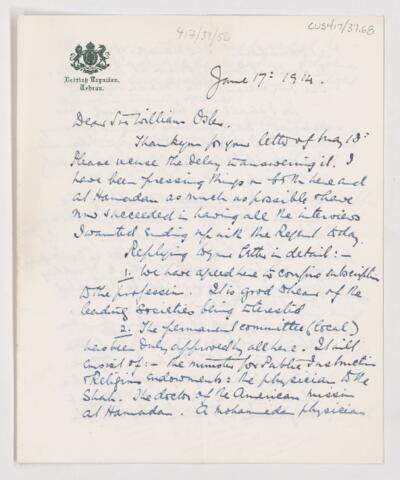 417/37/56
CUS417/37.68
British Legation,
Tehran.
June 17: 1914.
Dear Sir William Osler.
Thank you for your letter of May 13:
Please excuse the delay in answering it. I
have been pressing things on both here and
at Hamadan as much as possible & have
now succeeded in having all the interviews
I wanted ending up with the Regent today.
Replying to your letter in detail:-
1. We have agreed here to confine subscription
to the profession. It is good to hear of the
leading Societies being interested
2. The permanent committee (local)
has been duly approved by all here. It will
consist of:- The minister for Public Instruction
& Religious endowments: The physician to the
Shah. The doctor of the American mission
at Hamadan. A mohamedan physician